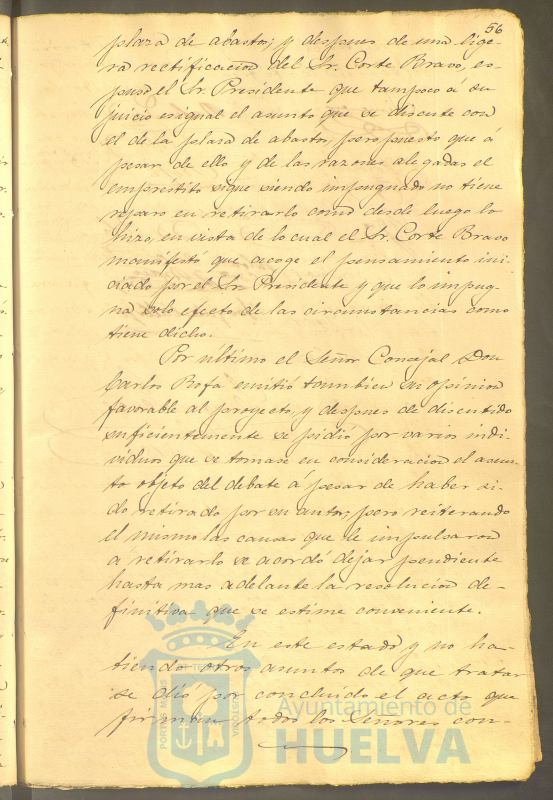 56
plaza de abastos; y despues de una lige-
ra rectificacion del Sr. Corte Bravo, es-
puso el Sr. Presidente que tampoco á su
juicio es igual el asunto que se discute con
el de la plaza de abastos, pero puesto que á
pesar de ello y de las razones alegadas el
empréstito sigue siendo impugnado no tiene
reparo en retirarlo como desde luego lo
hizo, en vista de lo cual el Sr. Corte Bravo
manifestó que acoge el pensamiento ini-
ciado por el Sr. Presidente y que lo impug-
na solo efecto de las circunstancias como
tiene dicho.
Por último el Señor Concejal Don
Carlos Rofa emitió tambien su opinion
favorable al proyecto, y despues de discutido
suficientemente se pidió por varios indi-
viduos que se tomase en consideracion el asun-
to objeto del debate á pesar de haber si-
do retirado por su autor; pero reiterando
el mismo las causas que le impulsaron
á retirarlo se acordó dejar pendiente
hasta mas adelante la resolucion de-
finitiva que se estime conveniente.
En este estado y no ha-
biendo otros asuntos de que tratar
se dió por concluido el acto que
firman todos los Señores con-
PORTUS MARIS ET TERRÆ CUSTODIA
Ayuntamiento de
HUELVA